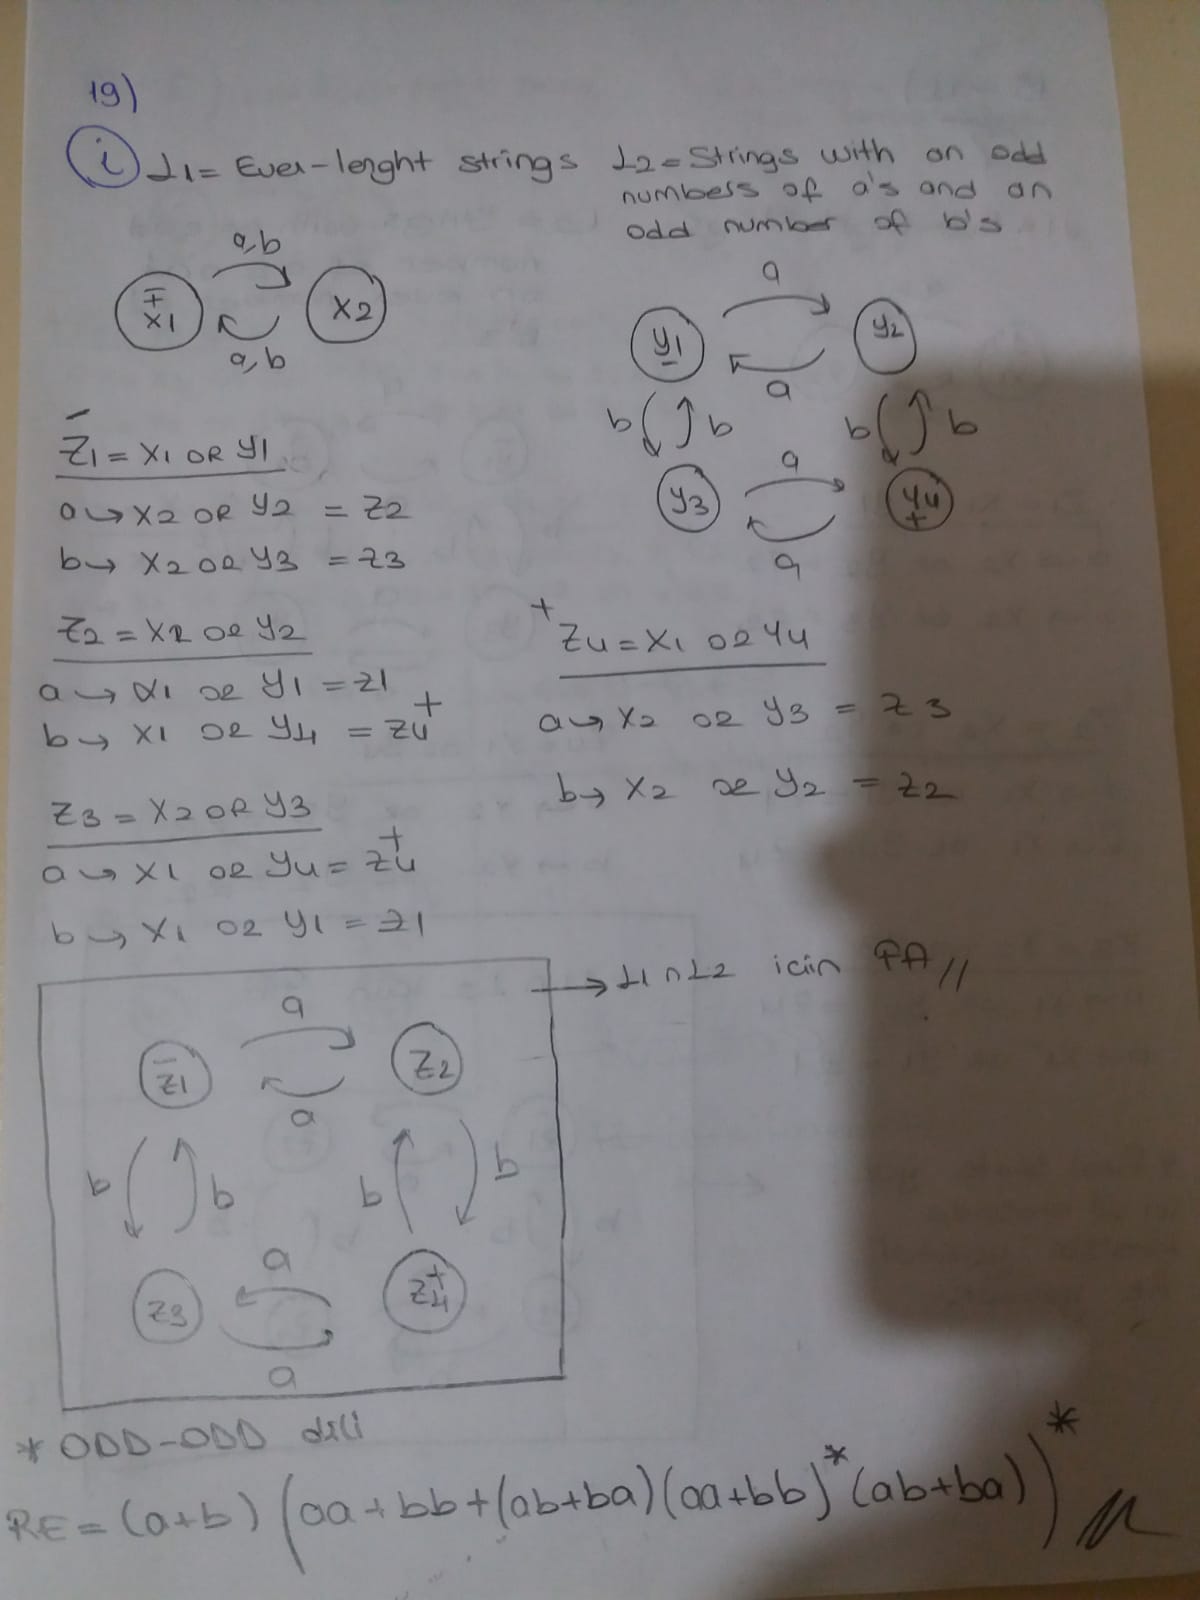 19)
i L1 = Even-lenght strings
L2 = Strings with an odd
numbers of a's and an
odd number of b's
a,b
± x1
x2
a,b
a
y1
y2
a
b
b
b
b
a
y3
y4 +
a
-
Z1 = X1 OR Y1
a → X2 OR Y2 = Z2
b → X2 OR Y3 = Z3
Z2 = X2 OR Y2
a → X1 OR Y1 = Z1
b → X1 OR Y4 = Z4+
Z3 = X2 OR Y3
a → X1 OR Y4 = Z4+
b → X1 OR Y1 = Z1
+Z4 = X1 OR Y4
a → X2 OR Y3 = Z3
b → X2 OR Y2 = Z2
→ L1 ∩ L2 icin FA //
a
-
Z1
Z2
a
b
b
b
b
a
Z3
Z4+
a
* ODD-ODD dili
RE = (a+b) (aa+bb+(ab+ba)(aa+bb)*(ab+ba))* //